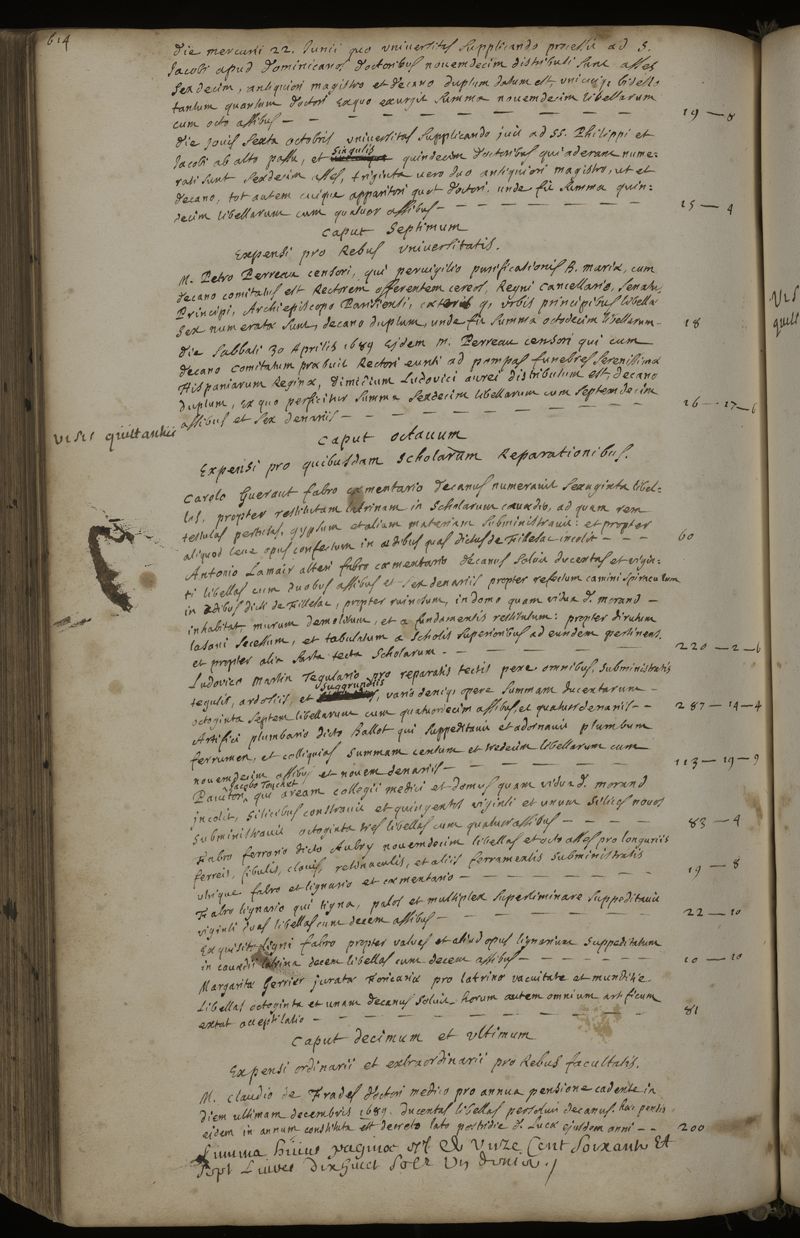 614
die mercurii 22. Junii quo universitas supplicando processit ad S.
Jacobi apud dominicanos, doctoribus novemdecim distributi sunt asses
sexdecim, antiquiori magistro et decano duplum datum est, unicuique bis
tantum quantum doctori exquo exurgit summa novemdecim libellarum
cum octo assibus — 19 — 8
die jovis sexta octobris universitas supplicando ivit ad SS. Philippi et
Jacobi ab alto passu, et singulis quindecim doctoribus qui aderant nume-
rati sunt sexdecim asses, triginta vero duo antiquiori magistro, ut et
decano, tot autem cuique apparitori quot doctori. unde fit summa quin-
decim libellarum cum quatuor assibus — 15 — 4
Caput Septimum
Expensi pro Rebus universitatis.
M. Petro Perreau censori, qui pervigilio purificationis B. mariæ, cum
decano comitatus est Rectorem offerentem cereos, Regni Cancellario, Senatus
Principi, Archiepiscopo Parisiensi, cæteris q; urbis principibus libellæ
sex numeratæ sunt, decano duplum, unde fit summa octodecim libellarum — 18
die Sabbati 30 Aprilis 1689 Eidem M. Perreau censori qui cum
decano comitatum præbuit Rectori eunti ad pompas funebres Serenissimæ
Hispaniarum Reginæ, dimidium Ludovici aurei distributum est, decano
duplum, ex quo perficitur summa sexdecim libellarum cum septemdecim
assibus et sex denariis — 16 — 17 — 6
visis quittantiis
Caput octavum
Expensi pro quibusdam Scholarum Reparationibus.
Carolo Gueraut fabro cæmentario decanus numeravit sexaginta libel-
las, propter restitutam latrinam in scholarum cavædio, ad quam rem
testulas perticas, gypsum et aliam materiam subministravit: et propter
aliquod leve opus confectum in ædibus quas dictus de incolit — 60
Antonio Lamair alteri fabro cæmentario decanus solvit ducentas et vigin-
ti libellas cum duobus assibus et sex denariis propter refectum camini spiraculum
in ædibus dicti de propter ruinosum, in domo quam vidua d. morand —
inhabitat murum demolitum, et a fundamentis restitutum: propter dirutum
lasani secessum, et tabulatum a scholis superioribus ad eundem pertinens.
et propter alia sarta tecta scholarum — 220 — 2 — 6
Ludovico Martin Tegulario pro reparatis tectis pene omnibus, subministratis
tegulis, ardosiis, et suggrundiis, vario denique opere summam ducentarum —
octoginta septem libellarum cum quatuordecim assibus, et quatuor denariis — 287 — 14 — 4
Artifici plumbario dicto Ballot qui suppeditavit et adornavit plumbum
ferrumen, et colliquias summam centum et tredecim libellarum cum
novemdecim assibus et novem denariis — 113 — 19 — 9
Jacobo Touchet qui aream collegii medici et domus quam vidua d. morand
incolit, silicibus constravit et quingentos viginti et unum silices novos
subministravit octoginta tres libellas cum quatuor assibus — 83 — 4
Fabro ferrario dicto Aubry novemdecim libellas et octo asses pro longuriis
ferreis, fibulis, clavis, retinaculis, et aliis ferramentis subministratis
utrique fabro et lignario et cæmentario — 19 — 8
Fabro lignario qui tigna, palos et multiplex superliminare suppeditavit
viginti duas libellas cum decem assibus — 22 — 10
Exquisiti ligni fabro propter valvas et aliud opus lignarium suppeditatum
in cavædii latrina decem libellas cum decem assibus — 10 — 10
Margaritæ Gerrier juratæ foricariæ pro latrinæ vacuitate et munditie
libellas octoginta et unam decanus solvit. horum autem omnium artificum
extat acceptilatio — 81
Caput decimum et ultimum
Expensi ordinarii et extraordinarii pro Rebus facultatis.
M. Claudio de Frades doctori medico pro annua pensione cadente in
diem ultimam decembris 1689. ducentas libellas persolvit decanus. hæc pensio
eidem in annum constituta est decreto lato postridie d. Lucæ ejusdem anni — 200
Summa hujus paginæ Cent soixante Et
sept Livres Dix huict solz six deniers
visis
quitt